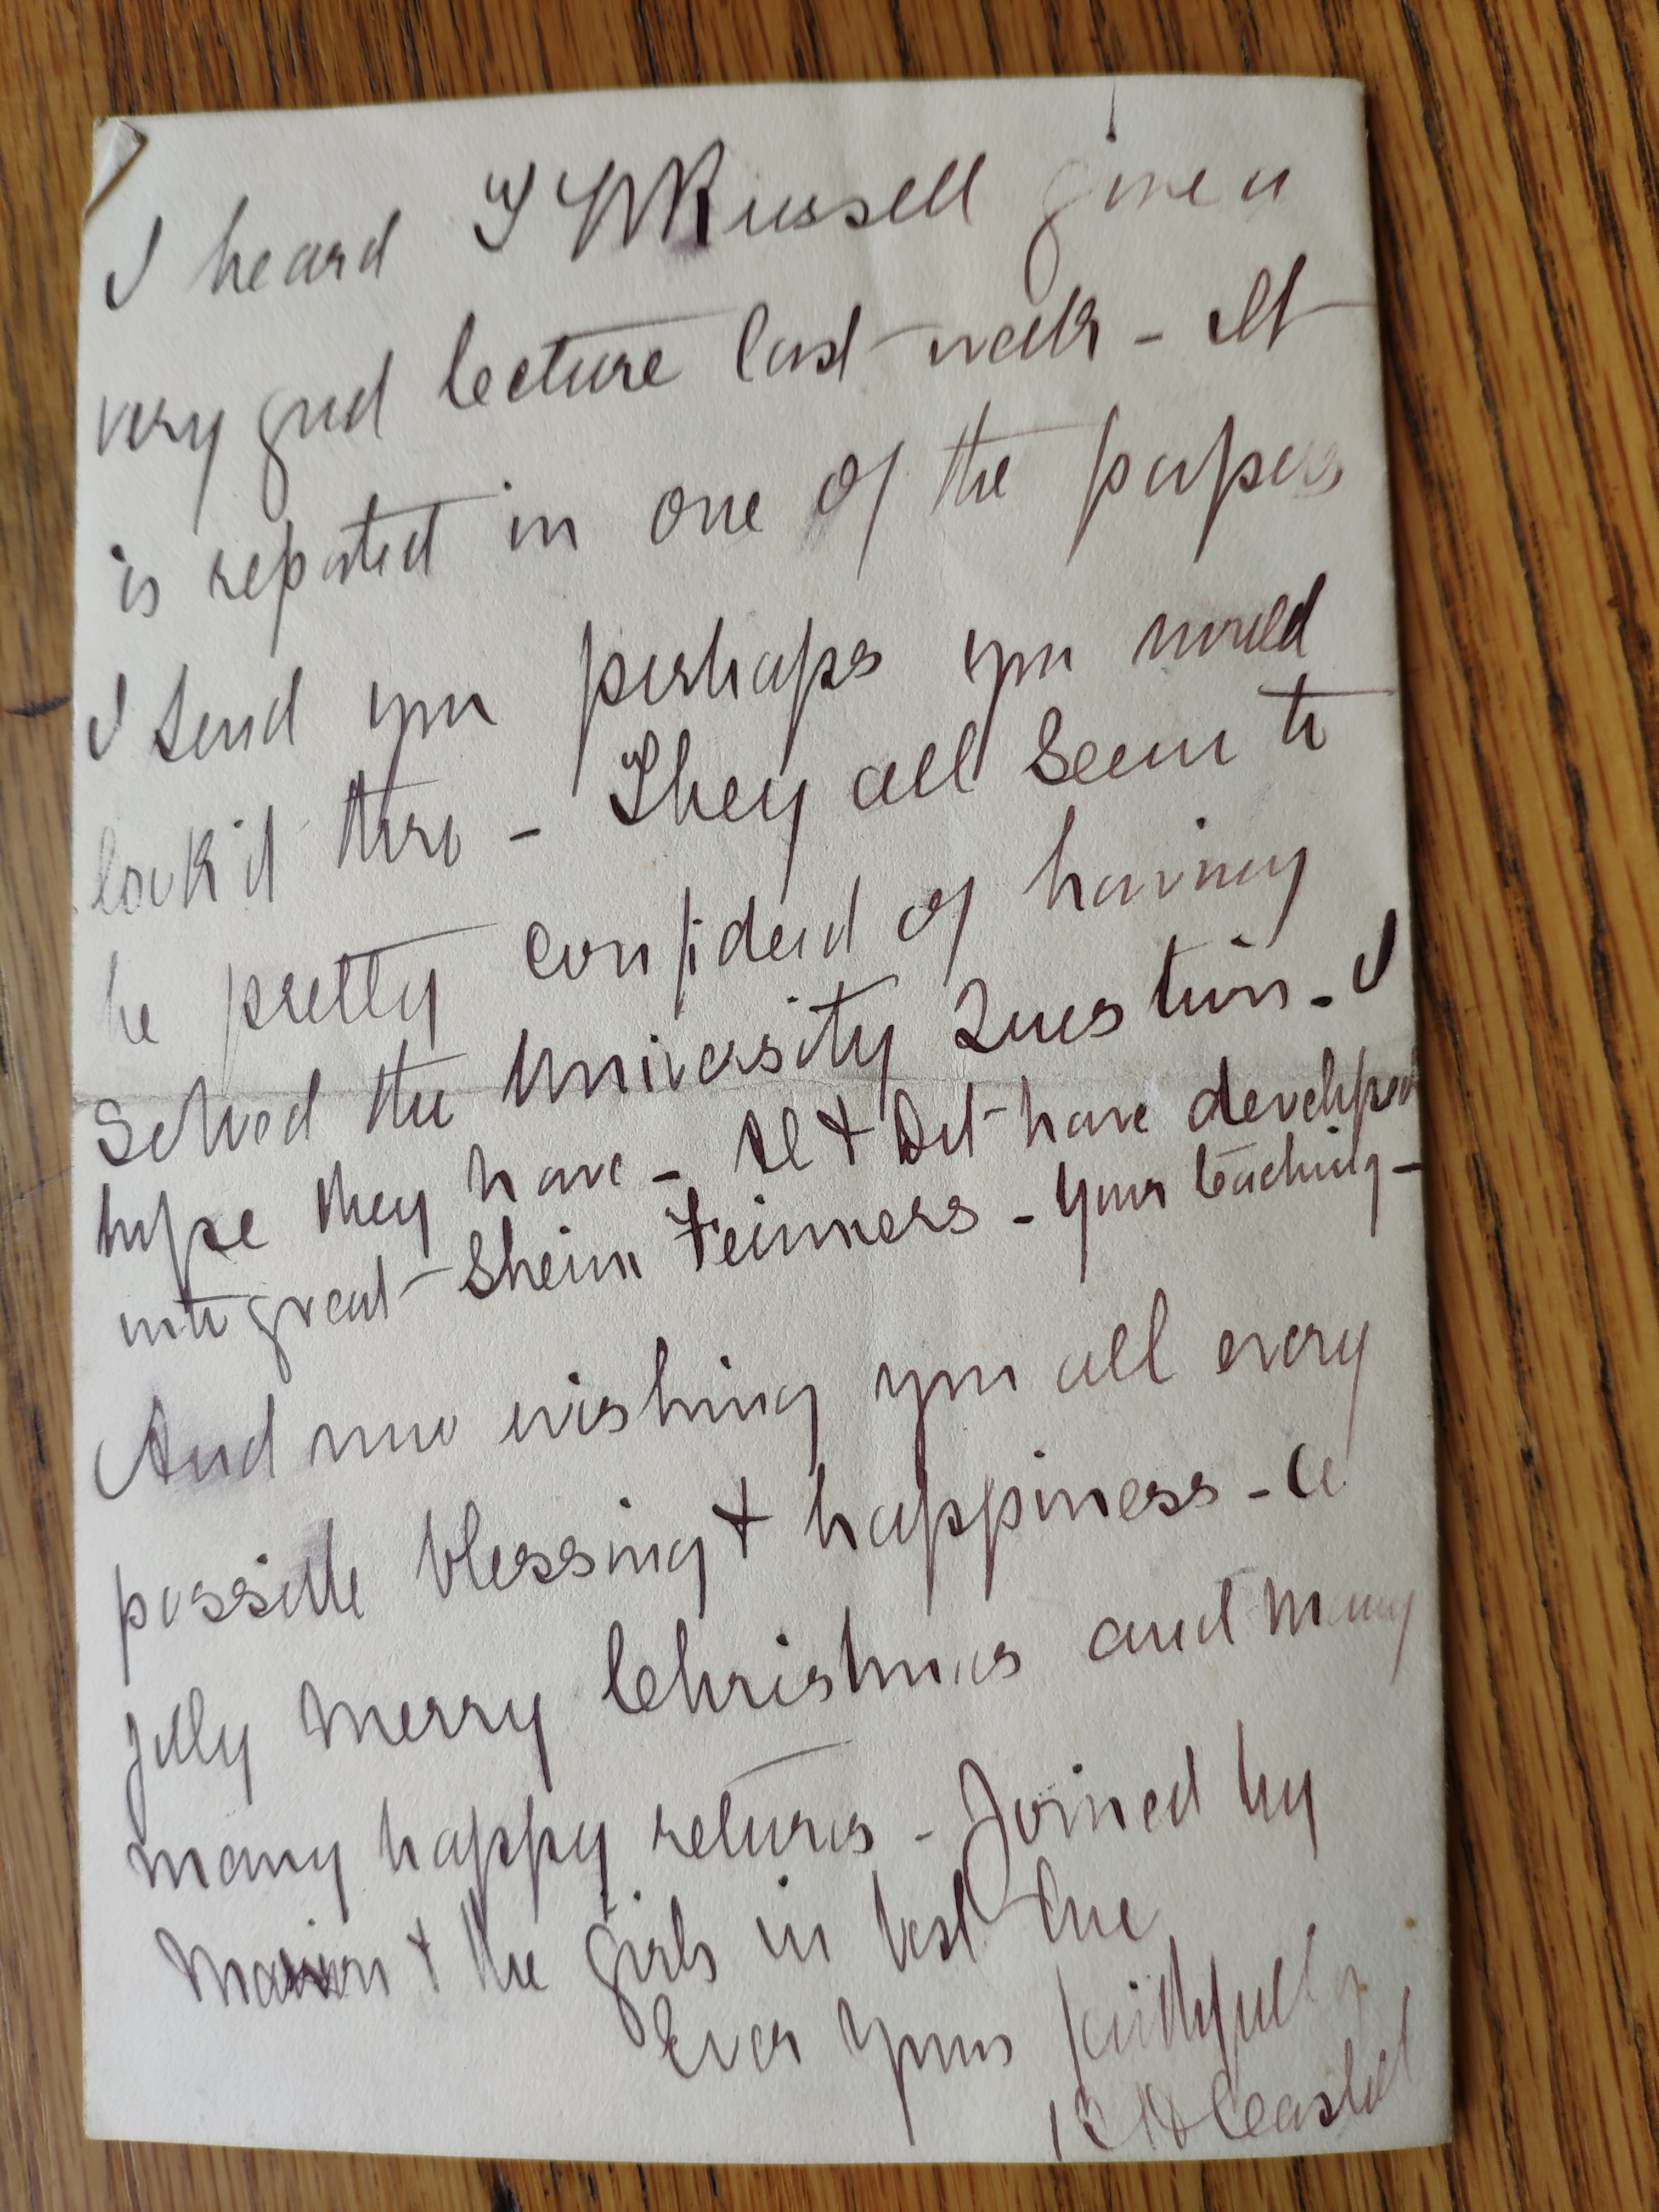 I heard T W Russell give a
very good lecture last week - It
is reported in one of the papers
I send you perhaps you would
look it thro - They all seem to
be pretty confident of having
solved the University Question - I
hope they have - Al & Dot have developed
into great Shein Feinners - your teaching -
And now wishing you all every
possible blessing & happiness - a
jolly merry Christmas and many
many happy returns - Joined by
Marion & the girls in best love
Ever yours faithfully